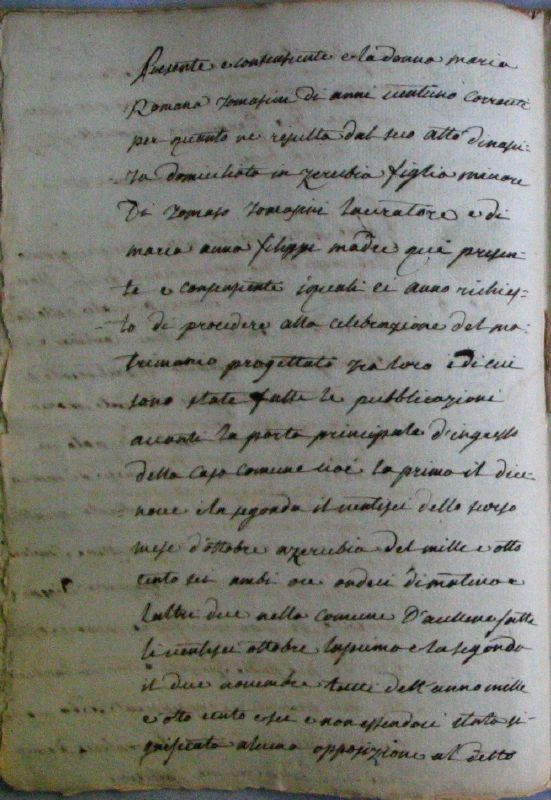 Presente e consensiente e la donna maria
Romana Tomasini di anni ventuno correnti
per quanto ne resulta dal suo atto dinasi-
ta domiciliata in zerubia figlia minore
Di Tomaso Tomasini lavoratore e di
maria anna filippi madre qui presen-
te e consensiente i quali ci anno richies-
to di procedere alla celebrazione del ma-
trimonio progettato tra loro e di cui
sono state fatte le pubblicazioni
avanti la porta principale d'ingresso
della Casa Comune cioè la prima il dice-
nove e la segonda il ventisei dello scorso
mese d'ottobre a zerubia del mille e otto
cento sei ambi ore ondeci di matino e
l'altre due nella comune D'aullene fatte
li ventisei ottobre la prima e la segonda
il due novembre tutti dell'anno mille
e otto cento e sei e non essendoci stata si-
gnificata alcuna opposizione al detto